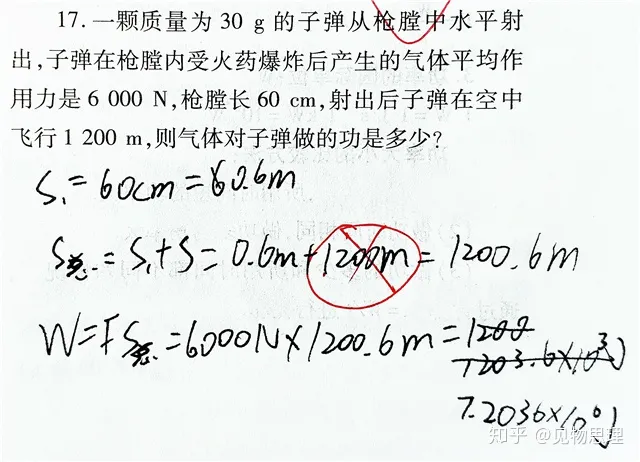 17.一颗质量为 30 g 的子弹从枪膛中水平射
出,子弹在枪膛内受火药爆炸后产生的气体平均作
用力是 6 000 N,枪膛长 60 cm,射出后子弹在空中
飞行 1 200 m,则气体对子弹做的功是多少?
S₁=60cm=0.6m
S总=S₁+S=0.6m+1200m=1200.6m
W=FS总=6000N×1200.6m=1200
1203.6×10³J
7.2036×10⁶J
知乎 @见物思理